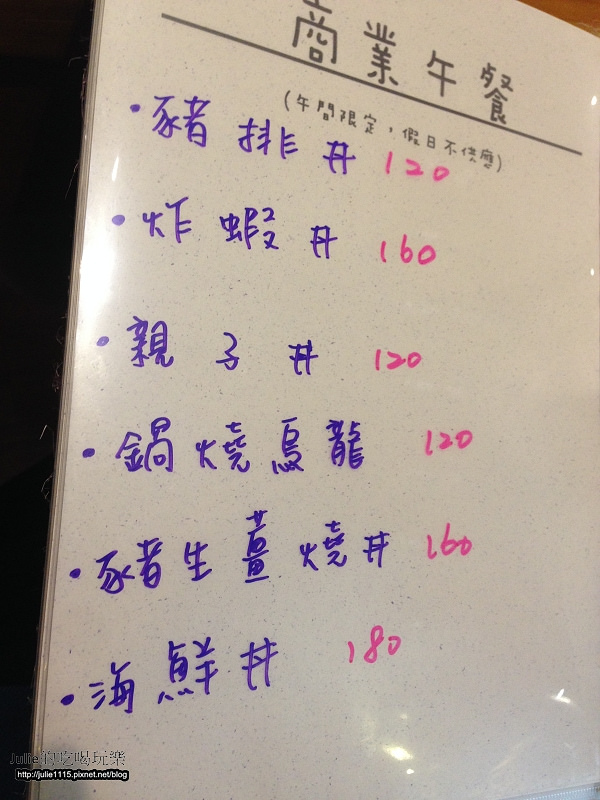 商業午餐
(午間限定，假日不供應)
•豬排丼 120
•炸蝦丼 160
•親子丼 120
•鍋燒烏龍 120
•豬生薑燒丼 160
•海鮮丼 180
Julie的吃喝玩樂
http://julie1115.pixnet.net/blog